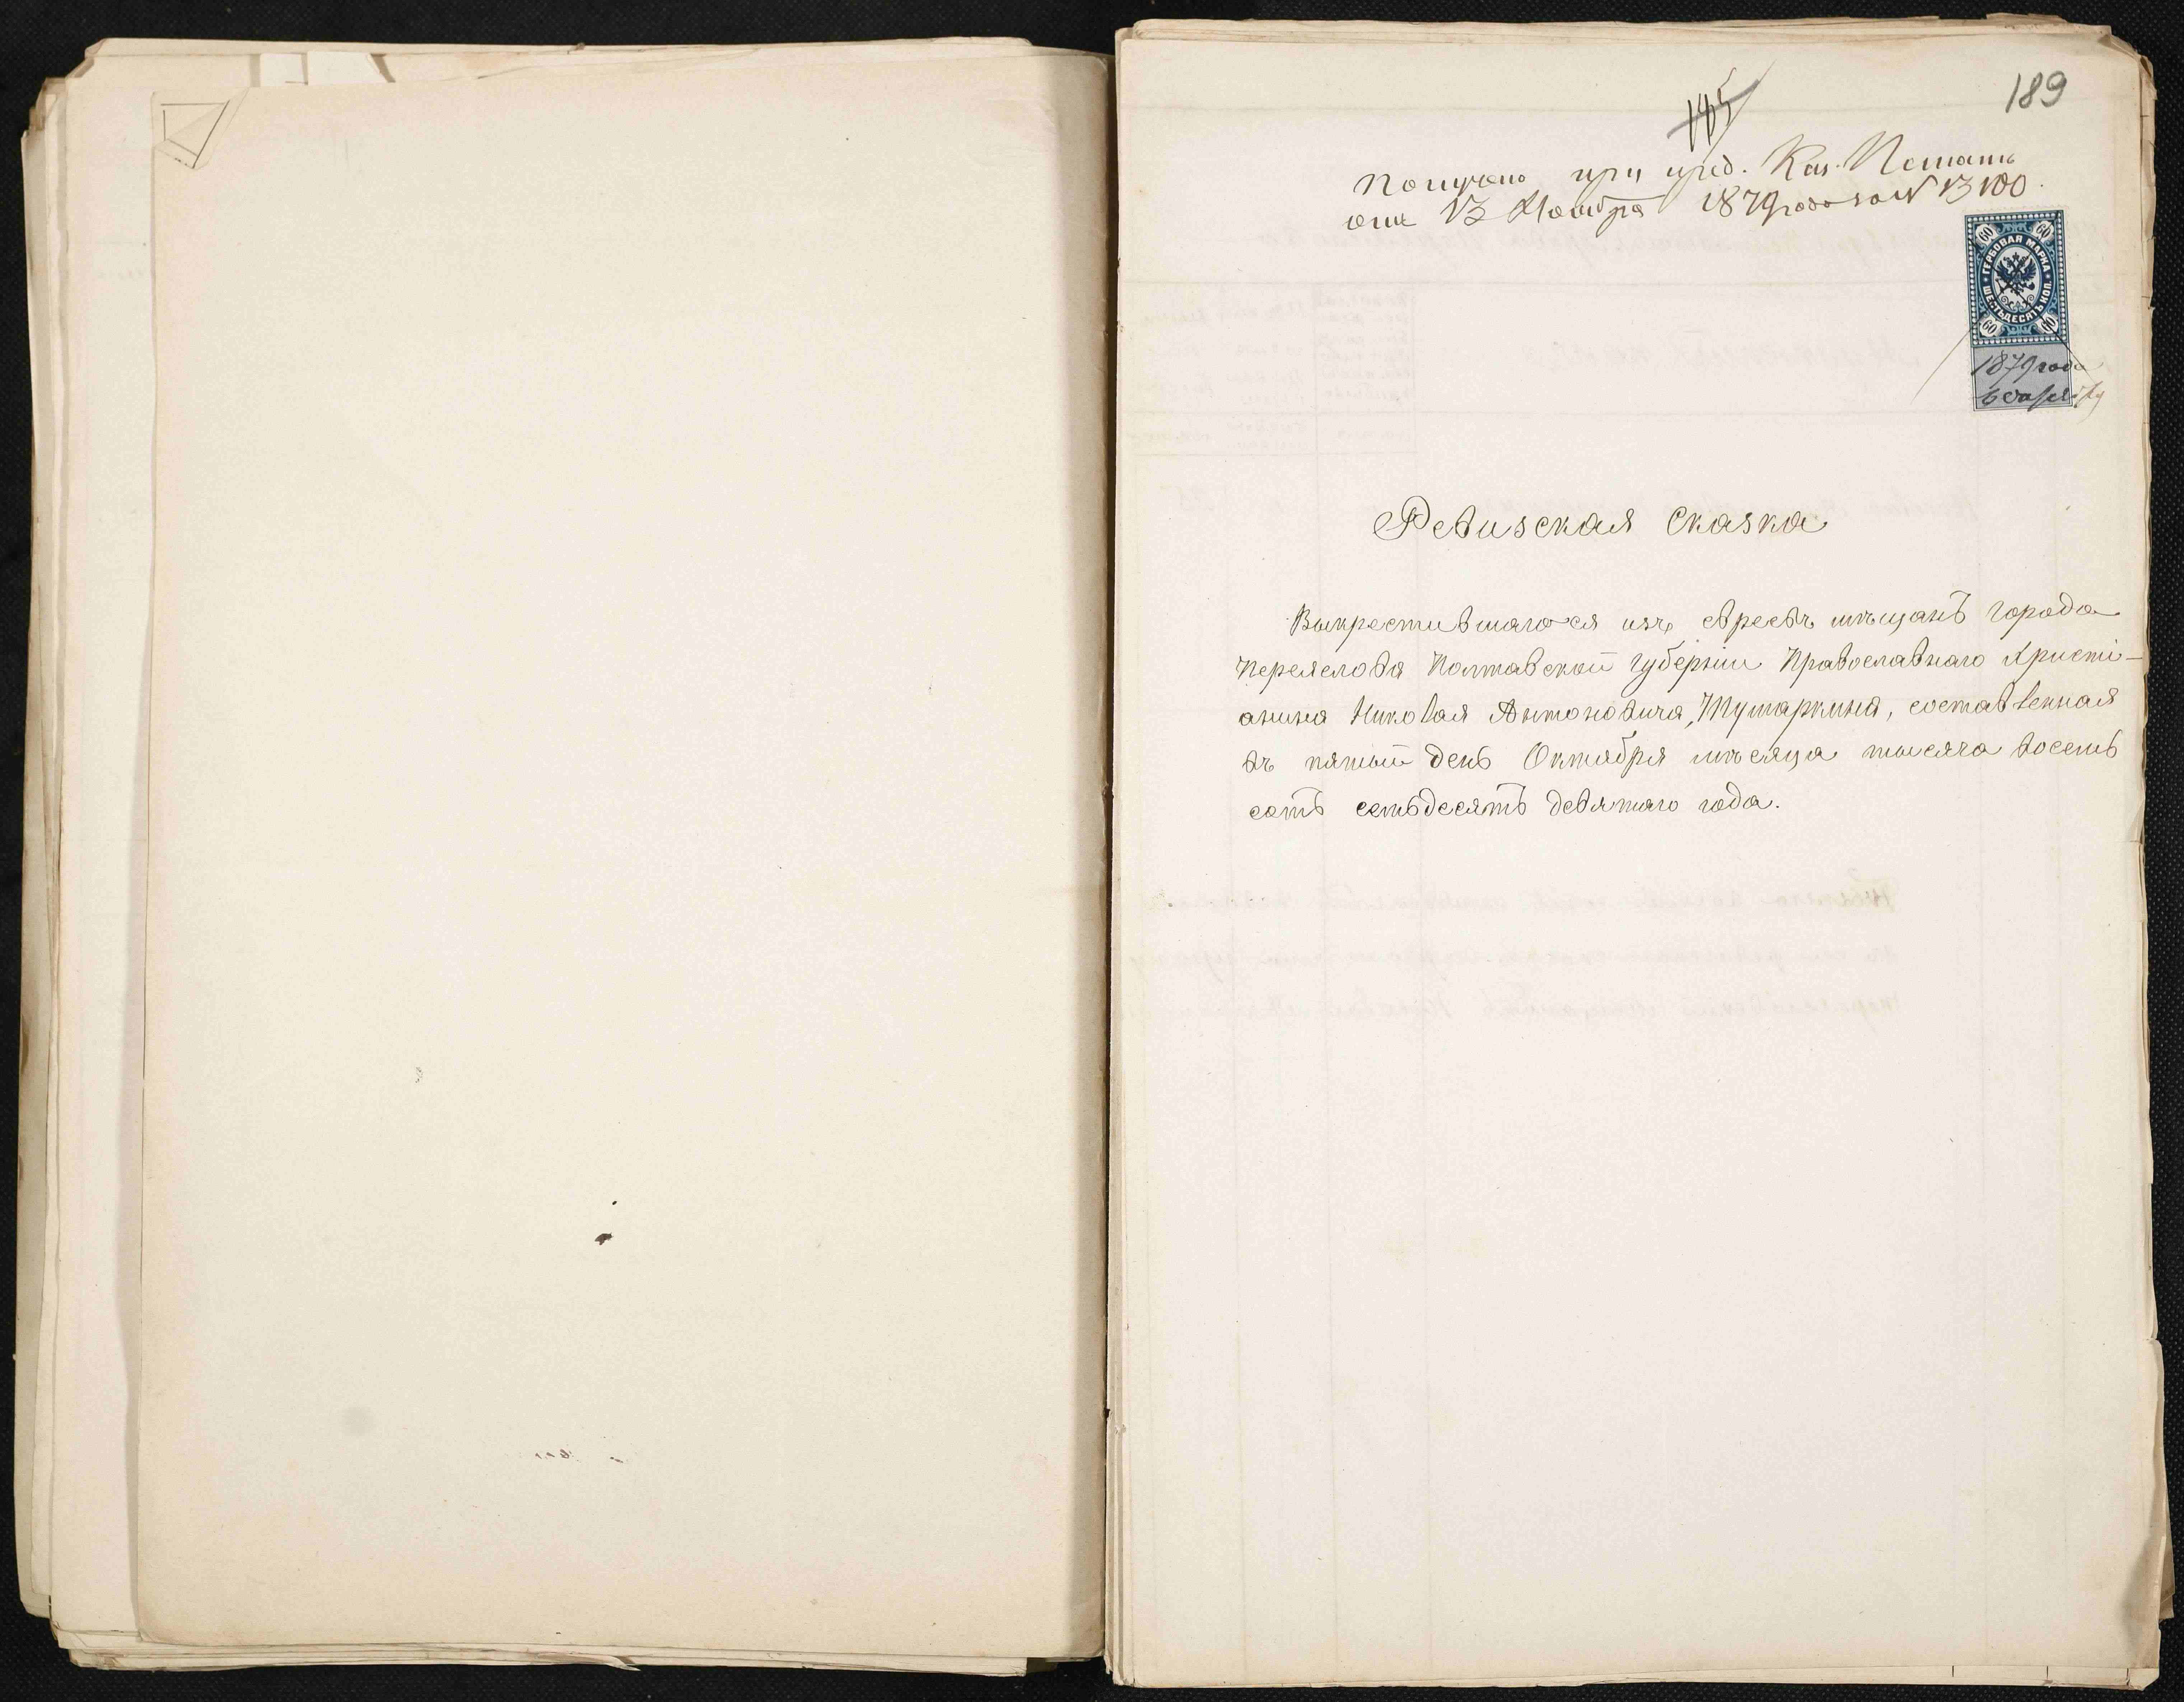 189
Получено при пред. Каз. Палаты
отъ 13 Ноября 1879 года за N 13100.
60 60
ГЕРБОВАЯ МАРКА
ШЕСТЬДЕСЯТЪ КОП.
60 60
1879 года
Ревизская сказка
Выкрестившагося изъ евреевъ мѣщанъ города
Переяслова Полтавской губерніи Православнаго Христі-
анина Николая Антоновича, Тутаркина, составленная
въ пятый день Октября мѣсяца тысяча восемь
сотъ семьдесятъ девятаго года.